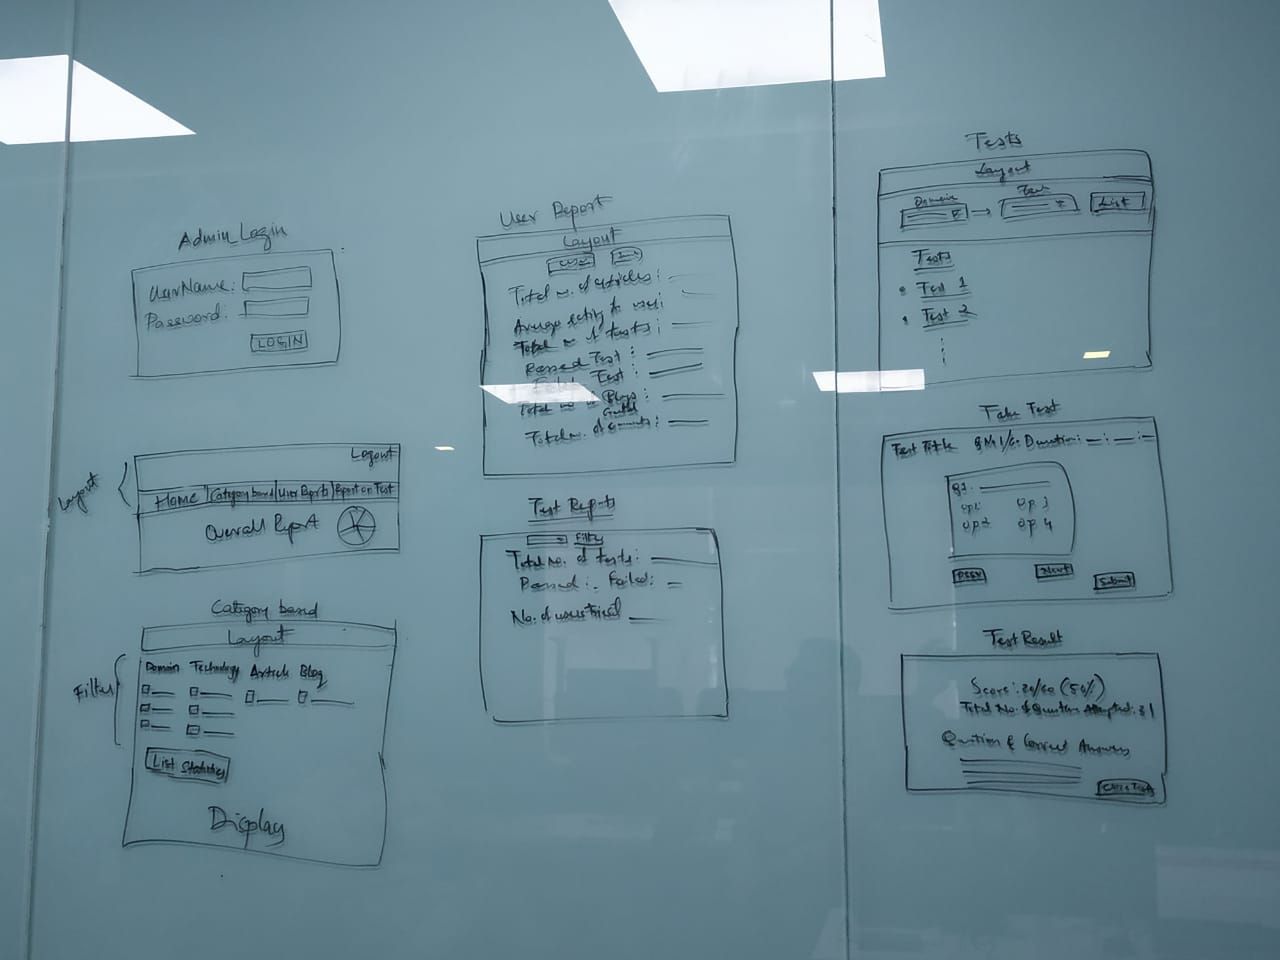 Admin Login
UserName:
Password:
LOGIN
Layout
Logout
Home | Category based | User Reports | Report on Test
Overall Report
Category based
Layout
Filter
Domain Technology Article Blog
List Statistics
Display
User Report
Layout
Total no. of articles:
Average activity to user:
Total no of tests:
Passed Test:
Failed Test:
Total no of Blogs
Total no. of comments:
Test Reports
Filter
Total no. of tests:
Passed: Failed:
No. of users tried
Tests
Layout
Domain
List
Tests
Test 1
Test 2
Take Test
Test Title Duration: : :
Q1.
op1 op 3
op2 op 4
Prev Next
Submit
Test Result
Score: 20/40 (50%)
Total No. of Question Attempted: 31
Question & Correct Answers